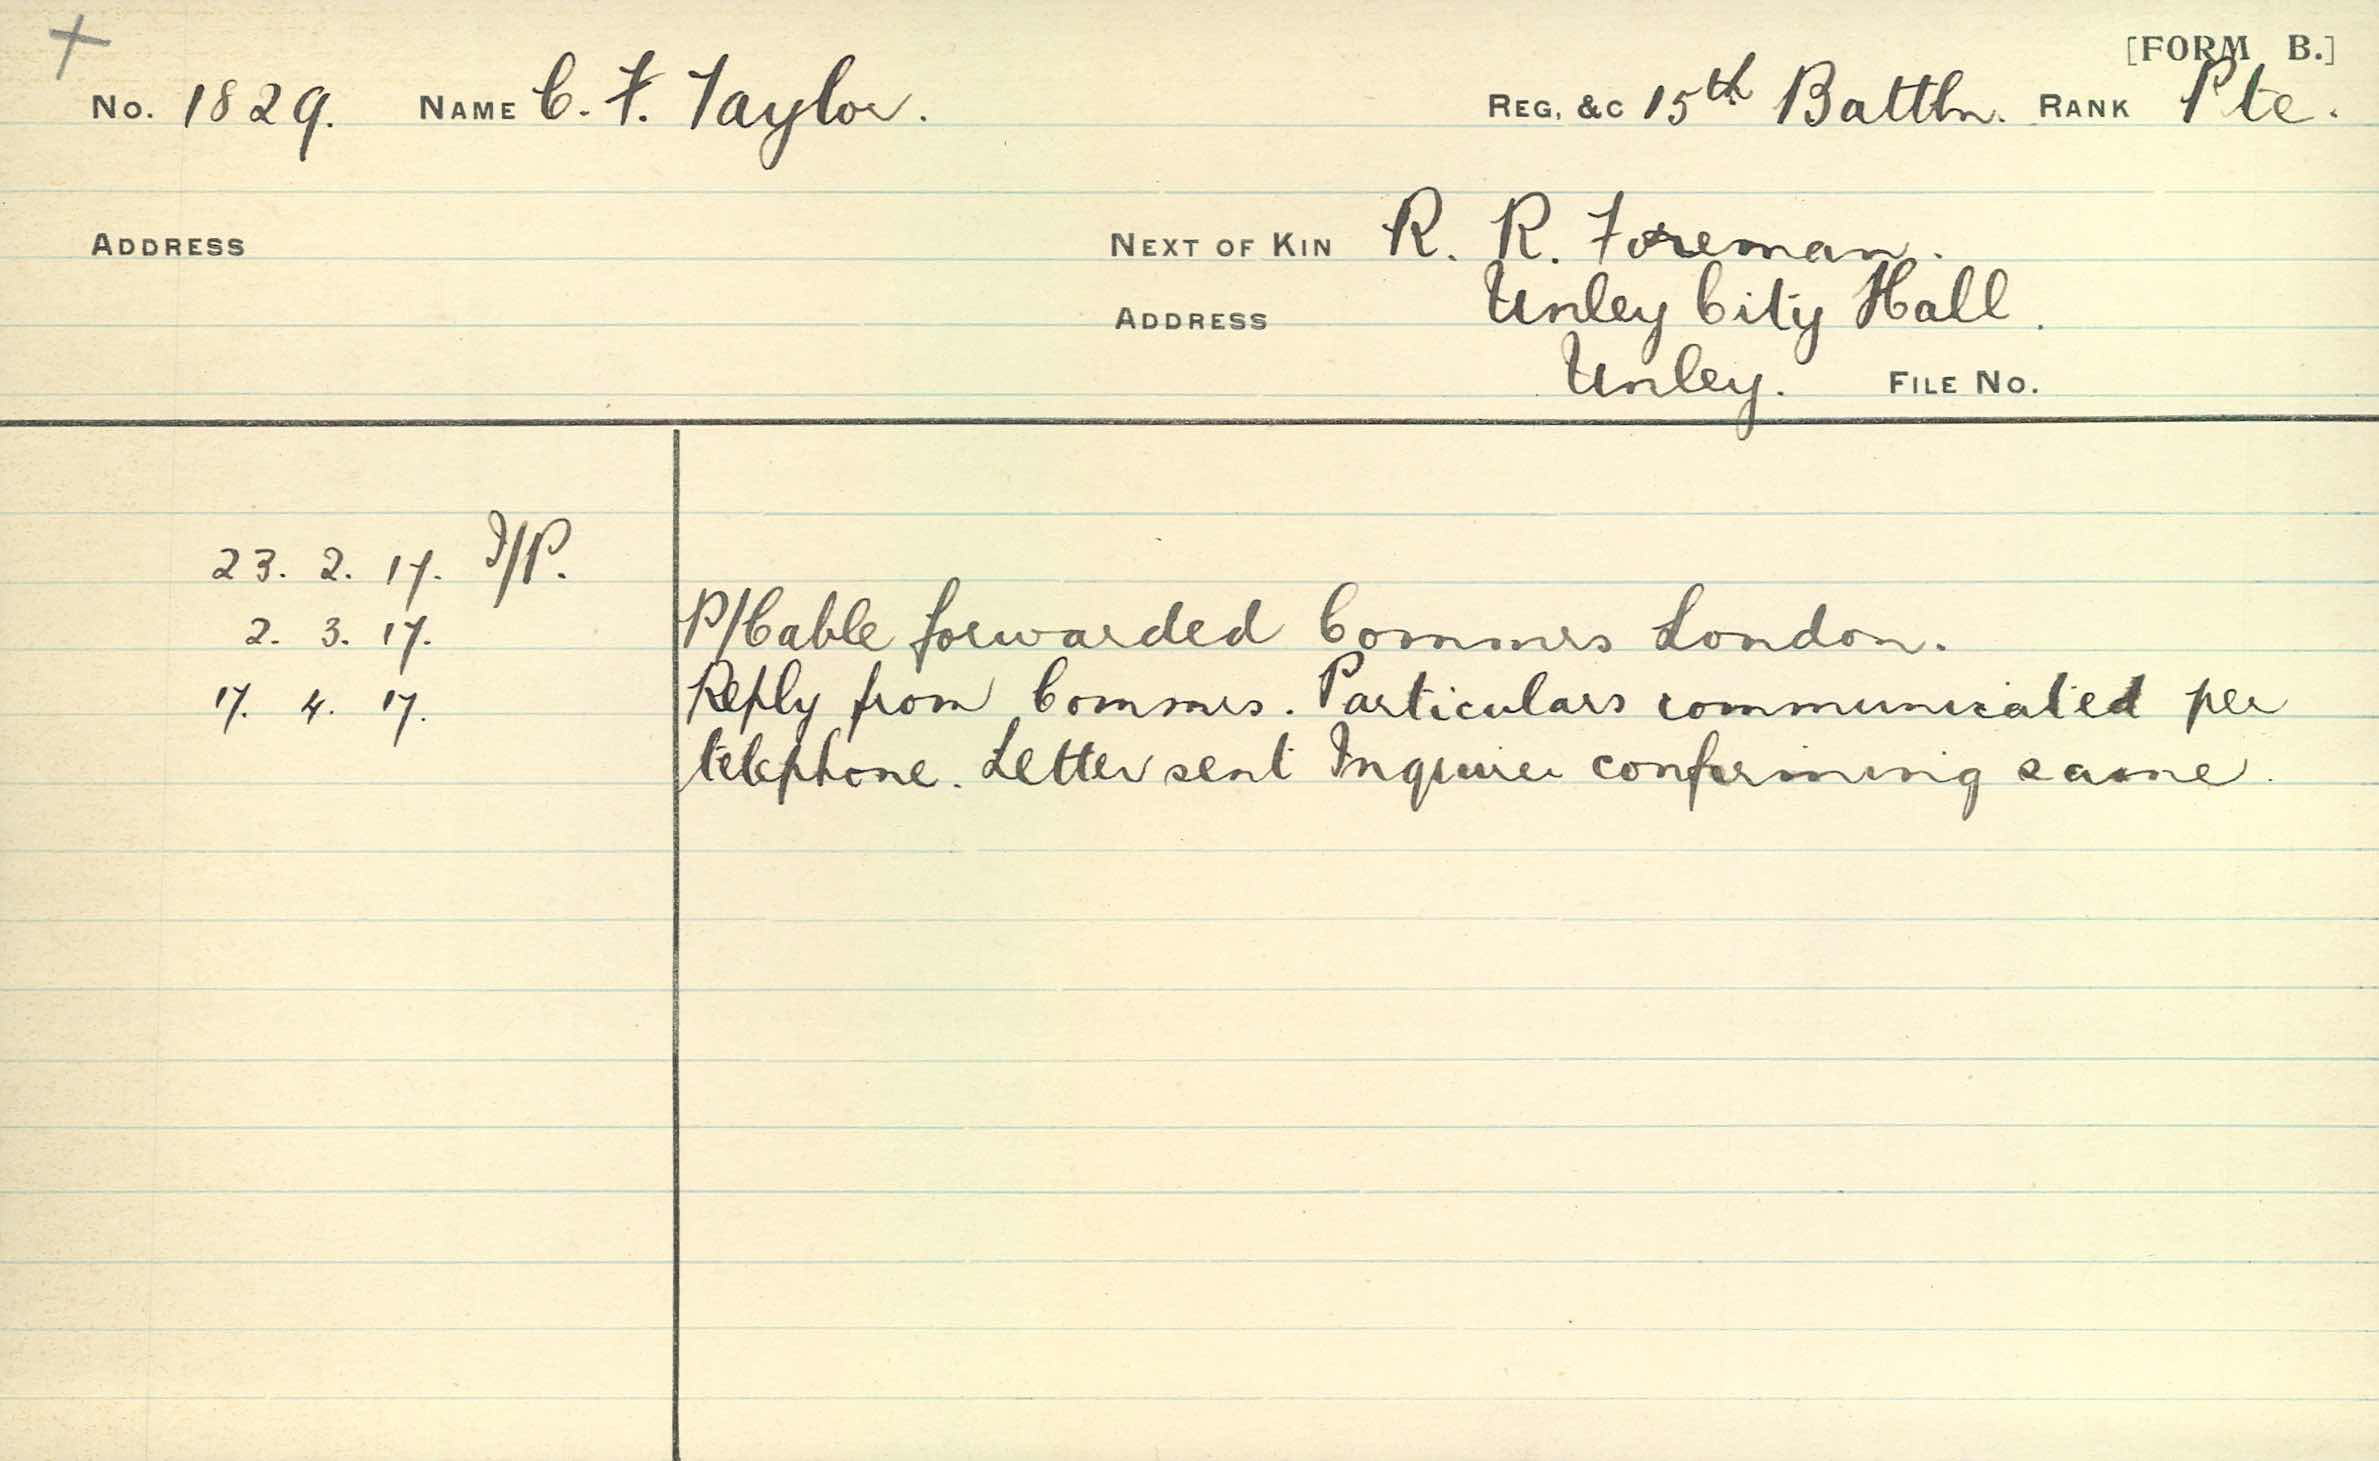 [FORM B.]
No. 1829. NAME C. F. Taylor. REG. &C 15th Battln. RANK Pte.
ADDRESS NEXT OF KIN R. R. Foreman.
ADDRESS Unley City Hall.
Unley. FILE No.
23. 2. 17. I/P.
2. 3. 17. P/Cable forwarded Commrs London.
17. 4. 17. Reply from Commrs. Particulars communicated per
telephone. Letter sent Inquirer confirming same.